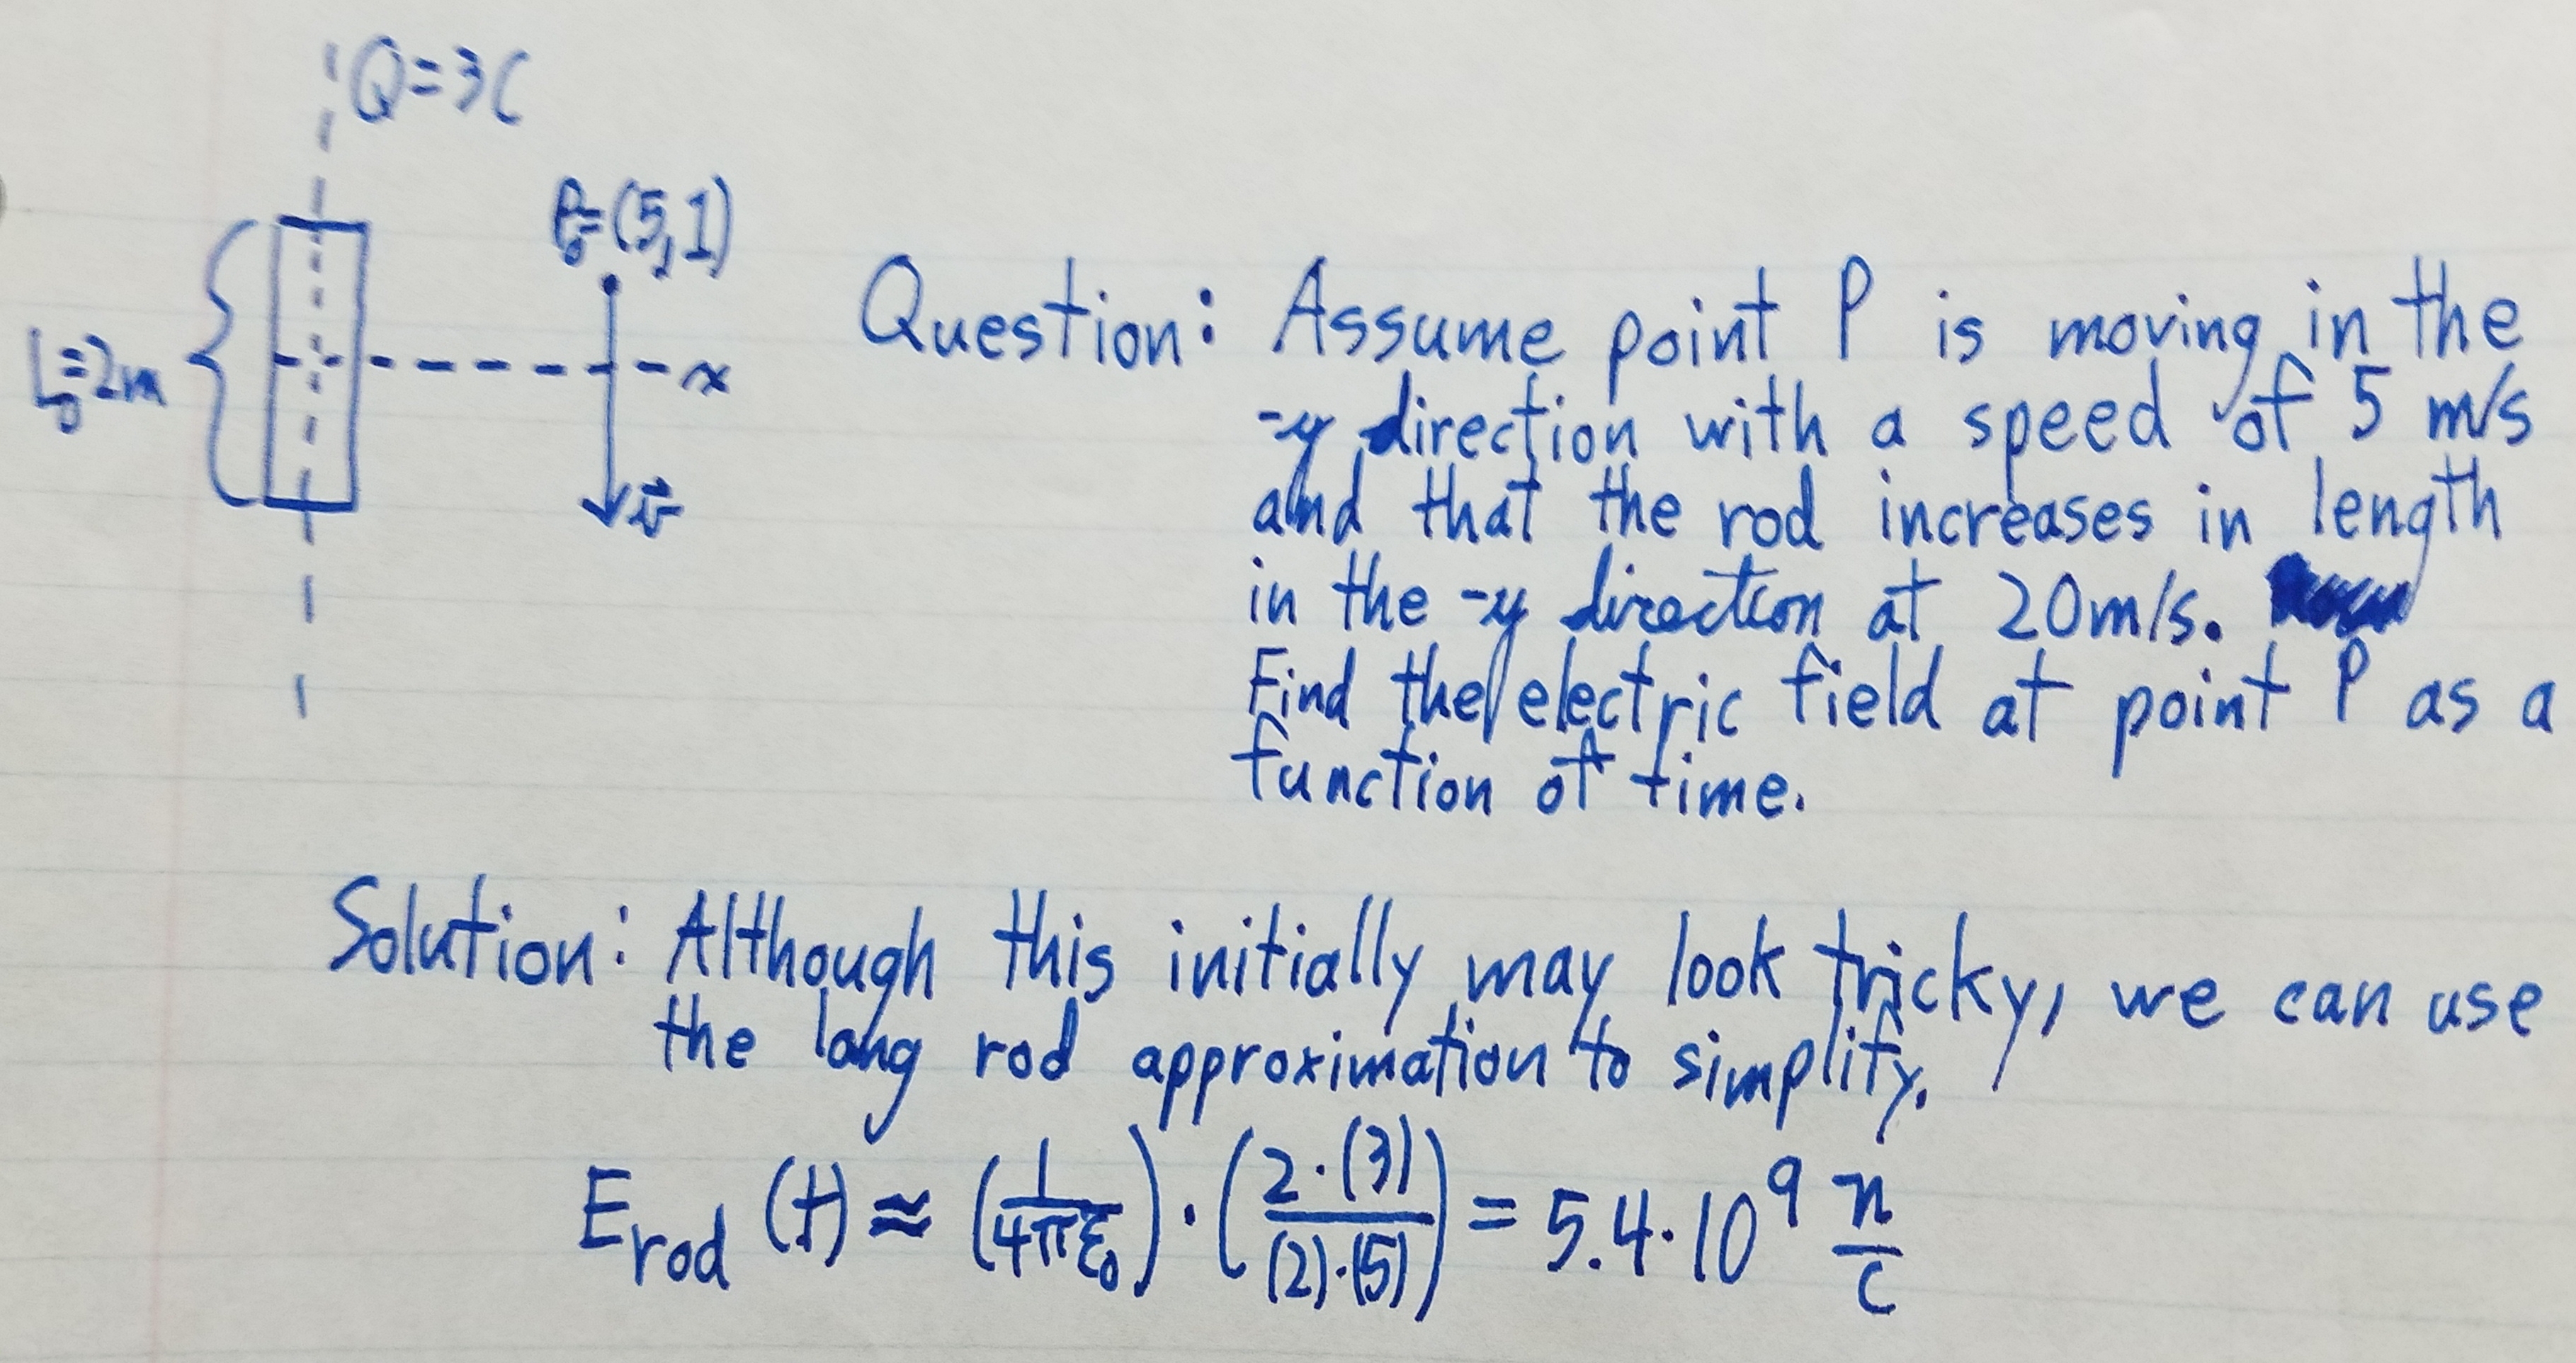 Q=3C
P₀=(5,1)
L₀=2m
x
v⃗
Question: Assume point P is moving in the
-y direction with a speed of 5 m/s
and that the rod increases in length
in the -y direction at 20m/s.
Find the electric field at point P as a
function of time.
Solution: Although this initially may look tricky, we can use
the long rod approximation to simplify.
E_rod (t) ≈ (1/4πε₀) · (2·(3)/(2)·(5)) = 5.4·10⁹ n/c